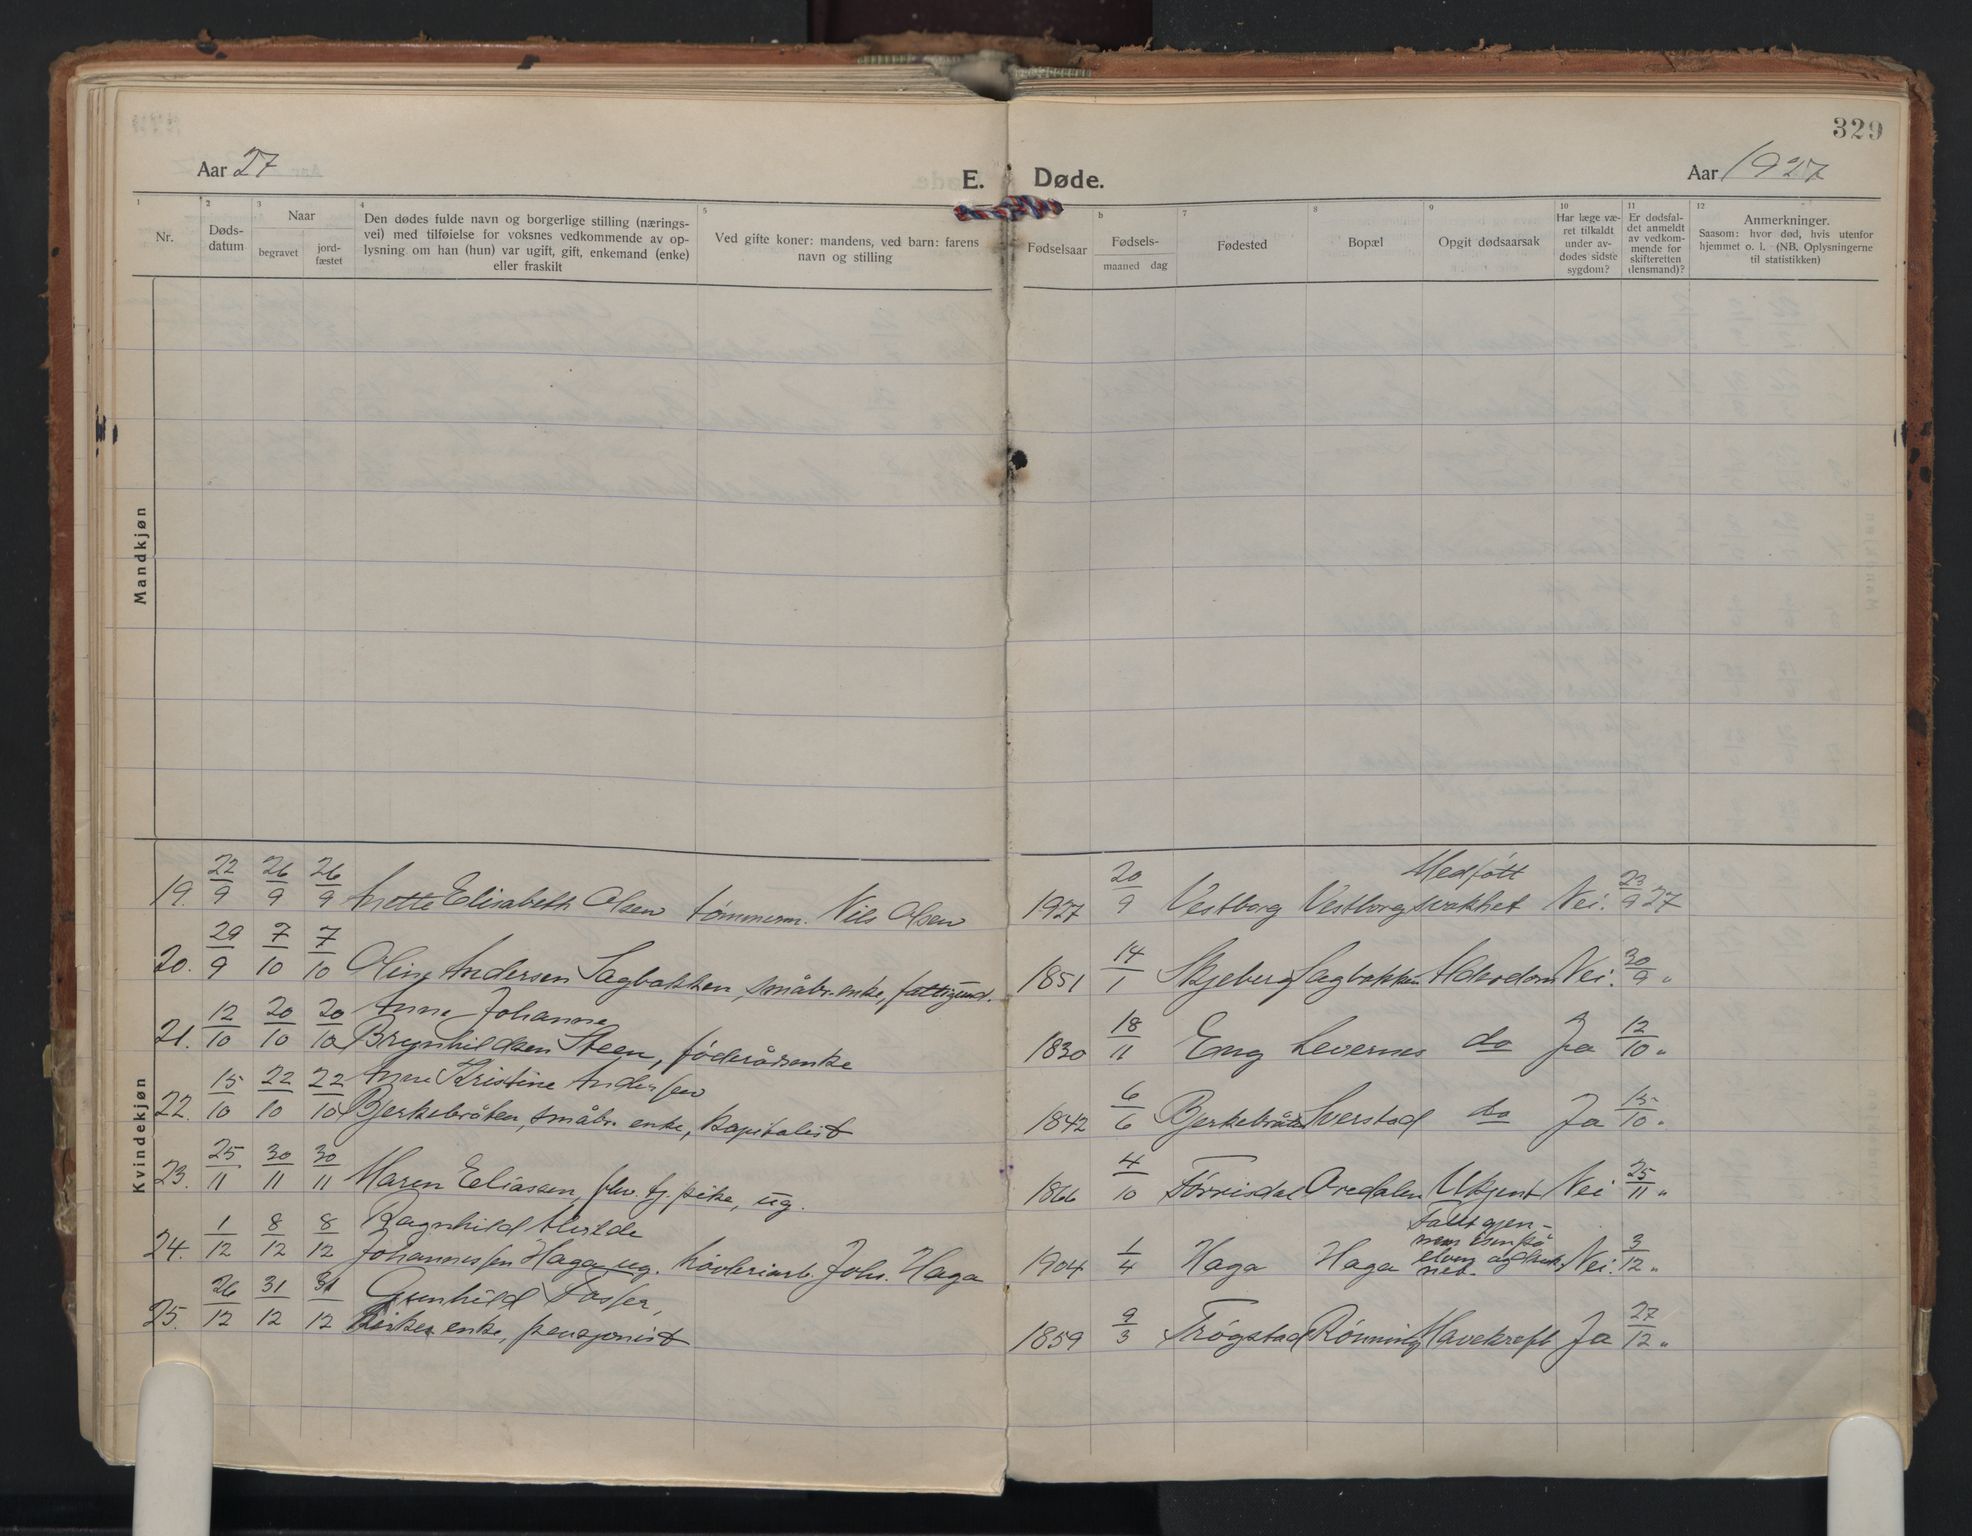 329
Aar 27
E. Døde.
Aar 1927
1 2 3 4 5 b 7 8 9 10 11 12
Nr.
Døds-
datum
Naar
begravet
jord-
fæstet
Den dødes fulde navn og borgerlige stilling (nærings-
vei) med tilføielse for voksnes vedkommende av op-
lysning om han (hun) var ugift, gift, enkemand (enke)
eller fraskilt
Ved gifte koner: mandens, ved barn: farens
navn og stilling
Fødselsaar
Fødsels-
maaned dag
Fødested
Bopæl
Opgit dødsaarsak
Har læge væ-
ret tilkaldt
under av-
dødes sidste
sygdom?
Er dødsfal-
det anmeldt
av vedkom-
mende for
skifteretten
(lensmand)?
Anmerkninger.
Saasom: hvor død, hvis utenfor
hjemmet o. l. (NB. Oplysningerne
til statistikken)
Mandkjøn
Kvindekjøn
19. 22/9 26/9 26/9 Anette Elisabeth Olsen tømmerm. Nils Olsen 1927 20/9 Vestborg Vestborg Medføtt
svakhet Nei. 23/9 27
20. 29/9 7/10 7/10 Oline Andersen Sagbakken, småbr. enke, fattigund. 1851 14/1 Skjeberg Sagbakken Alderdom Nei. 30/9 "
21. 12/10 20/10 20/10 Anne Johanne
Brynhildsen Steen, føderådsenke 1830 18/11 Eng Levernes do Ja 12/10 "
22. 15/10 22/10 22/10 Anne Kristine Andersen
Bjerkebråten, småbr. enke, kapitalist 1842 6/6 Bjerkebråten Sverstad do Ja 15/10 "
23. 25/11 30/11 30/11 Maren Eliassen, fhv. tj. pike, ug. 1866 4/10 Tørrisdal Oredalen Ukjent Nei 25/11 "
24. 1/12 8/12 8/12 Ragnhild Alvilde
Johannessen Haga ug. Joh. Haga 1904 1/4 Haga Haga Falt gjen-
nem isen på
elven og druk-
net. Nei. 3/12 "
25. 26/12 31/12 31/12 Gunhild Fosser,
enke, pensjonist 1859 9/3 Trøgstad Rønning Mavekreft Ja 27/12 "